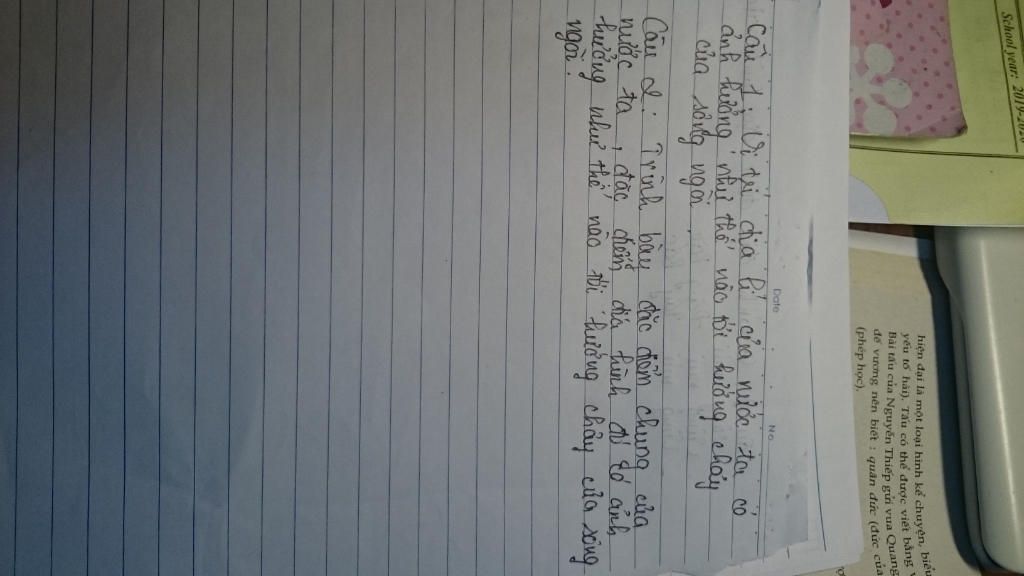 School year: 2019-2020
Date
No.
Câu 1: Vị trí địa lí của nước ta có
ảnh hưởng như thế nào tới hướng chảy
của sông ngòi.
Câu 2: Trình bày đặc điểm chung của
nước ta, đặc điểm địa hình đó có ảnh
hưởng như thế nào tới hướng chảy của sông
ngòi.
hiện đại là một loại hình kể chuyện, biểu
yếu tố hài). Tấu có thể được viết bằng
Bài tấu của Nguyễn Thiếp gửi vua Quang
đế vương nên biết : quân đức (đức của
(phép học).